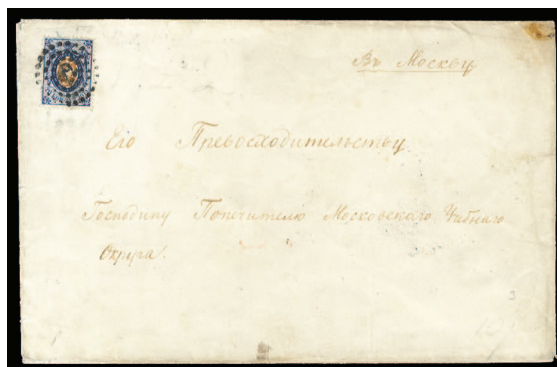 Въ Москву
Его Превосходительству
Господину Попечителю Московскаго Учебнаго
Округа.
3